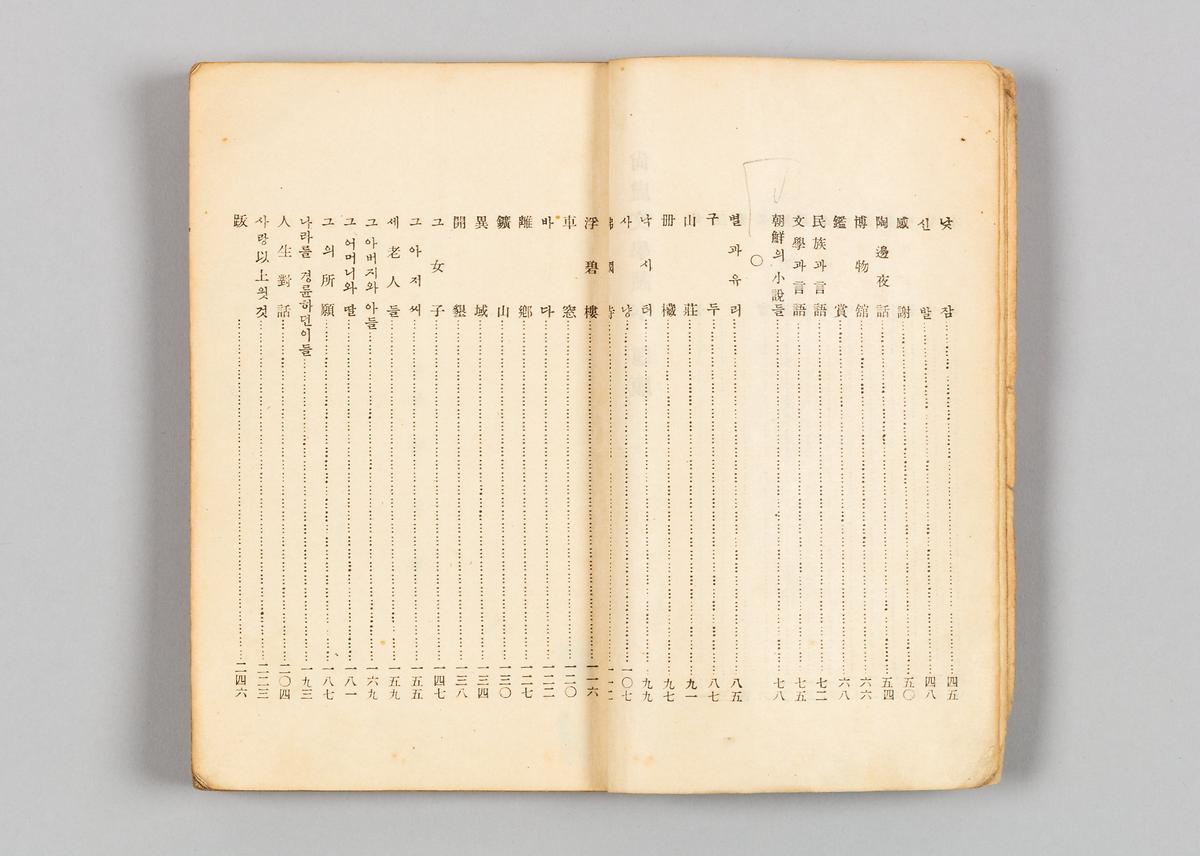 낮잠 四五
신발 四八
感謝 五〇
陶邊夜話 五四
博物舘 六六
鑑賞 六八
民族과言語 七二
文學과言語 七五
朝鮮의小說들 七八
〇
별과유리 八五
구두 八七
山莊 九一
册欌 九七
낙시터 九九
사냥 一〇七
浮碧樓 一一六
車窓 一二〇
바다 一二二
離鄕 一二七
鑛山 一三〇
異域 一三四
開墾 一三八
그女子 一四七
그아저씨 一五五
세老人들 一五九
그아버지와아들 一六九
그어머니와딸 一八一
그의所願 一八七
나라를경륜하던이들 一九三
人生對話 二〇四
사랑以上의것 二二三
跋 二四六